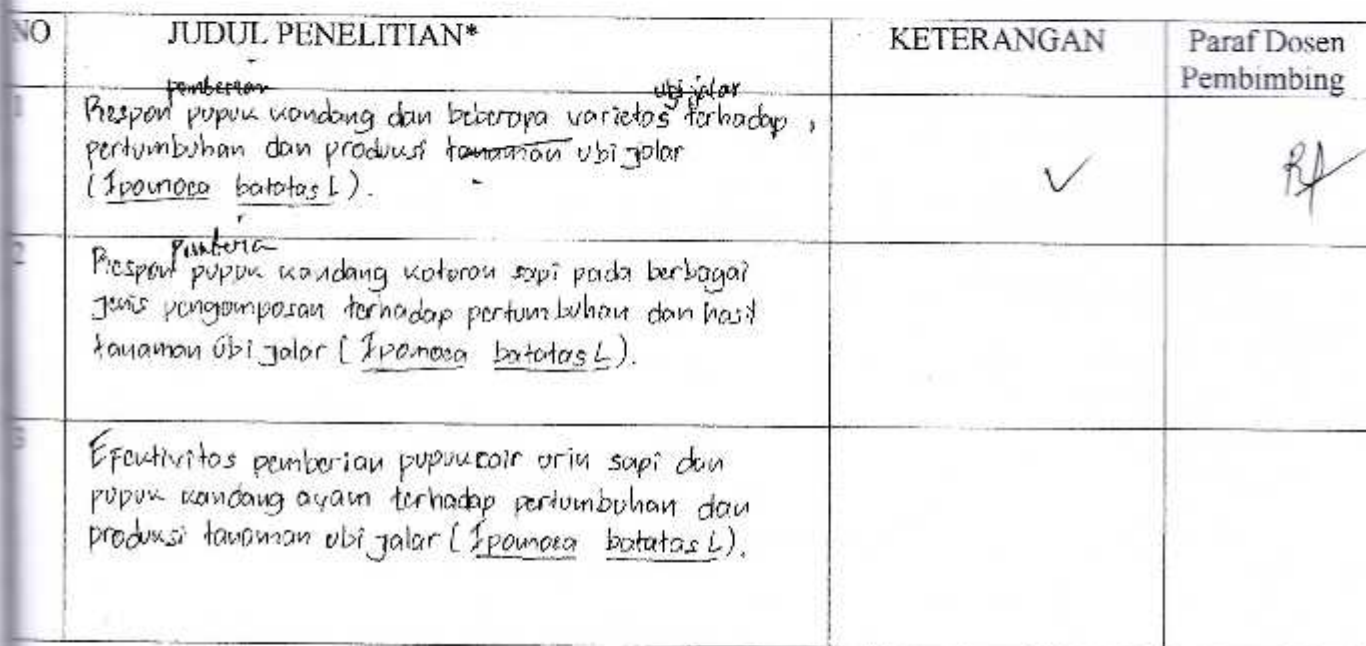 NO JUDUL PENELITIAN* KETERANGAN Paraf Dosen
Pembimbing
pemberian ubi jalar
1 Respon pupuk kandang dan beberapa varietas terhadap
pertumbuhan dan produksi tanaman ubi jalar
(Ipomoea batatas L).
✓
pemberia
2 Respon pupuk kandang kotoran sapi pada berbagai
jenis pengomposan terhadap pertumbuhan dan hasil
tanaman ubi jalar (Ipomoea batatas L).
3 Efektivitas pemberian pupuk cair urin sapi dan
pupuk kandang ayam terhadap pertumbuhan dan
produksi tanaman ubi jalar (Ipomoea batatas L).